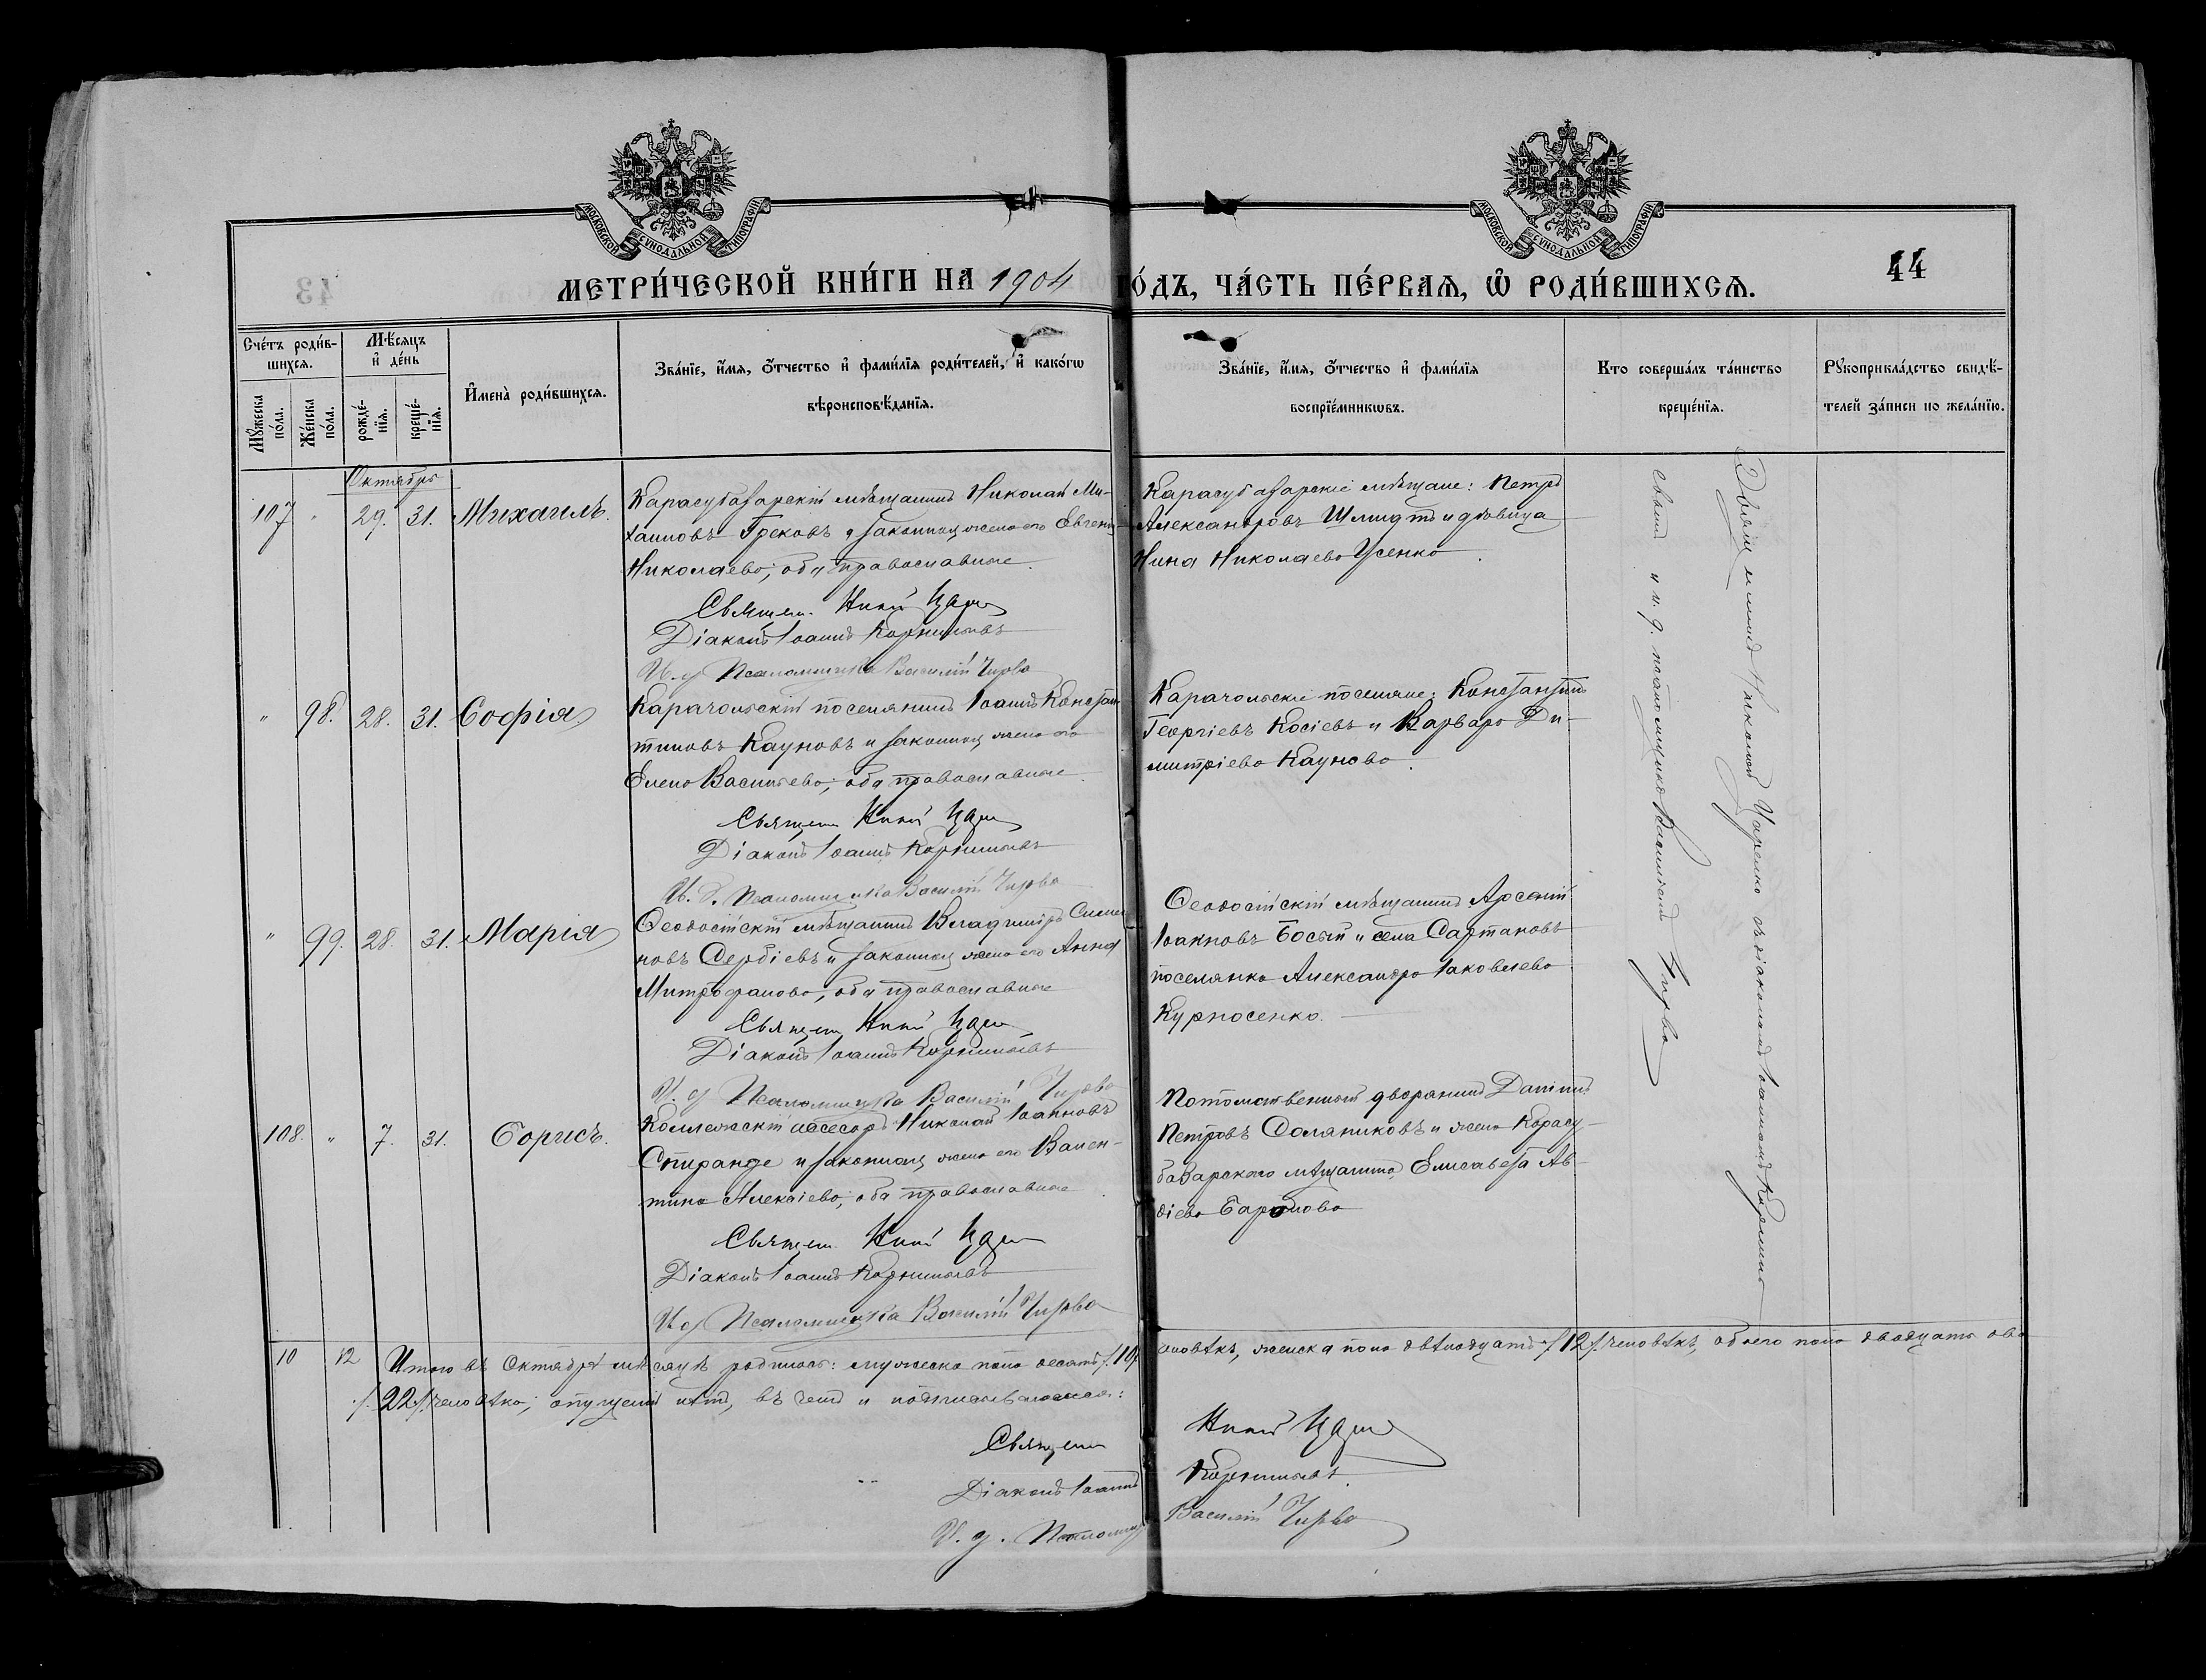 МОСКОВСКОЙ СѴНОДАЛЬНОЙ ТИПОГРАФІИ
МОСКОВСКОЙ СѴНОДАЛЬНОЙ ТИПОГРАФІИ
МЕТРИ́ЧЕСКОЙ КНИ́ГИ НА 1904 ГО́ДЪ, ЧА́СТЬ ПЕ́РВАЯ, Ѡ РОДИ́ВШИХСЯ.
44
Сче́тъ роди́в-
шихся.
Мꙋ́жеска по́ла.
Же́нска по́ла.
Мѣ́сяцъ
и҆ де́нь
рожде́-
нїя.
креще́-
нїя.
И҆мена̀ роди́вшихся.
Зва́нїе, и҆́мя, ѻ҆́тчество и҆ фами́лїя роди́телей, и҆ како́гѡ
вѣроисповѣ́данїя.
Зва́нїе, и҆́мя, ѻ҆́тчество и҆ фами́лїя
воспрїе́мникѡвъ.
Кто соверша́лъ та́инство
креще́нїя.
Рꙋкоприкла́дство свидѣ́-
телей за́писи по жела́нїю.
Октябрь
107 " 29. 31. Михаилъ.
Карасубазарскій мѣщанинъ Николай Ми-
хаиловъ Грековъ и законная жена его Евгенія
Николаева; оба православные.
Священ.
Діаконъ Іоаннъ Корнильевъ
И. д. Псаломщика Василій Чирва
Карасубазарскіе мѣщане: Петръ
Александровъ Шмидтъ и дѣвица
Нина Николаева Усенко.
" 98. 28. 31. Софія
Карачольскій поселянинъ Іоаннъ Констан-
тиновъ Кауновъ и законная жена его
Елена Васильева; оба православные.
Священ.
Діаконъ Іоаннъ Корнильевъ
И. д. Псаломщика Василій Чирва
Карачольскіе поселяне: Константинъ
Георгіевъ Косіевъ и Варвара Ди-
митріева Каунова.
" 99. 28. 31. Марія
Ѳеодосійскій мѣщанинъ Владиміръ Симео-
новъ Сербіевъ и законная жена его Анна
Митрофанова, оба православные
Священ.
Діаконъ Іоаннъ Корнильевъ
И. д. Псаломщика Василій Чирва
Ѳеодосійскій мѣщанинъ Арсеній
Іоанновъ Босый и села Сартановъ
поселянка Александра Іаковлева
Курносенко.
108. " 7. 31. Борисъ.
Коллежскій ассесоръ Николай Іоанновъ
Спиранде и законная жена его Вален-
тина Алексіева; оба православные.
Священ.
Діаконъ Іоаннъ Корнильевъ
И. д. Псаломщика Василій Чирва
Потомственный дворянинъ Даніилъ
Петровъ Соляниковъ и жена Карасу-
базарскаго мѣщанина Елисавета Ав-
діева Баранова
Священникъ Николай Царенко съ діакономъ Іоанномъ
и и. д. псаломщика Василіемъ Чирва
10 12 Итого въ Октябрѣ мѣсяцѣ родилось: мужеска пола десять /.10/. человѣкъ, женска пола двѣнадцать /.12/. человѣкъ, обоего пола двадцать два
/.22/. человѣка; опущеній нѣтъ, въ чемъ и подписываемся:
Священ.
Діаконъ Іоаннъ Корнильевъ.
И. д. Псаломщ. Василій Чирва